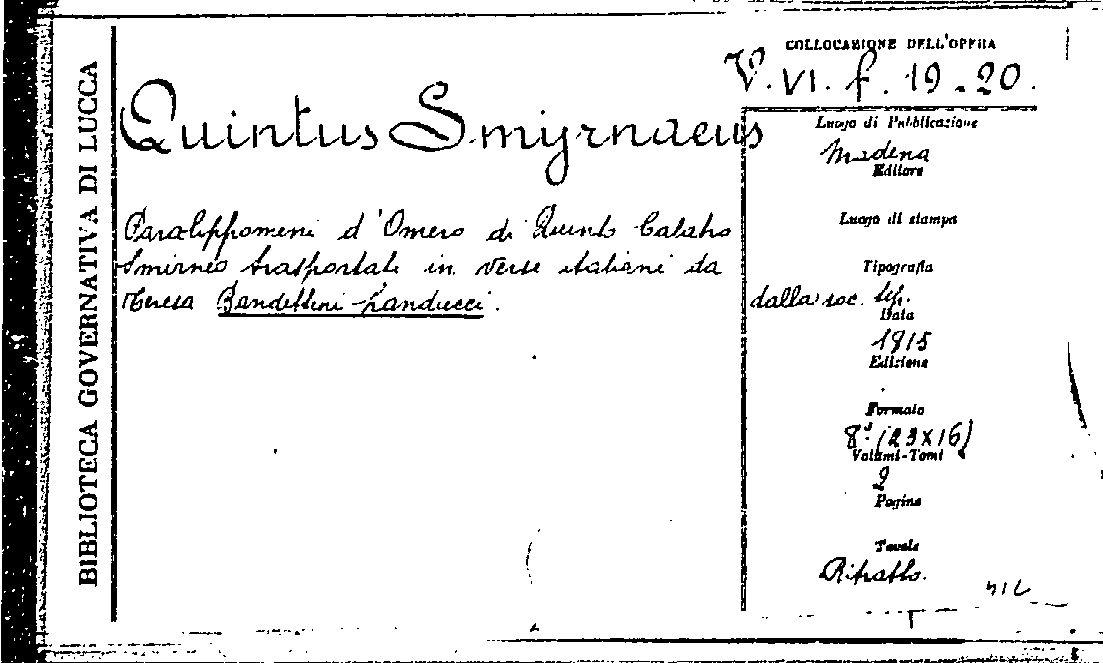 BIBLIOTECA GOVERNATIVA DI LUCCA
COLLOCAZIONE DELL'OPERA
V. VI. f. 19-20.
Quintus Smyrnaeus
Paralippomeni d'Omero di Quinto Calabro
Smirneo trasportati in versi italiani da
Teresa Bandettini-Landucci.
Luogo di Pubblicazione
Modena
Editore
Luogo di stampa
Tipografia
dalla soc. tip.
Data
1815
Edizione
Formato
8° (23x16)
Volumi-Tomi
2
Pagine
Tavole
Ritratto.